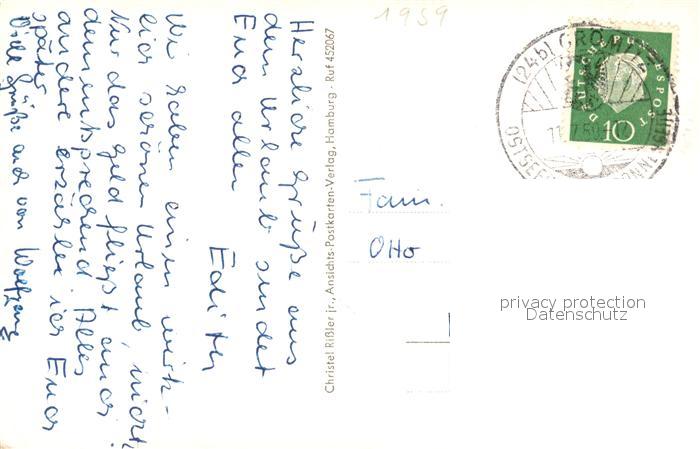 1959
Herzliche Grüße aus
dem Urlaub sendet
Euch allen
Edith
Wir haben einen wirk-
lich schönen Urlaub, nicht?
Nur das Geld fließt auch
dementsprechend. Alles
andere erzählen wir Euch
später.
Viele Grüße auch von Wolfgang
Christel Rißler jr., Ansichts-Postkarten-Verlag, Hamburg · Ruf 452067
Fam.
Otto
(24b) GRÖMITZ
OSTSEE
DEUTSCHE BUNDESPOST
10
privacy protection
Datenschutz